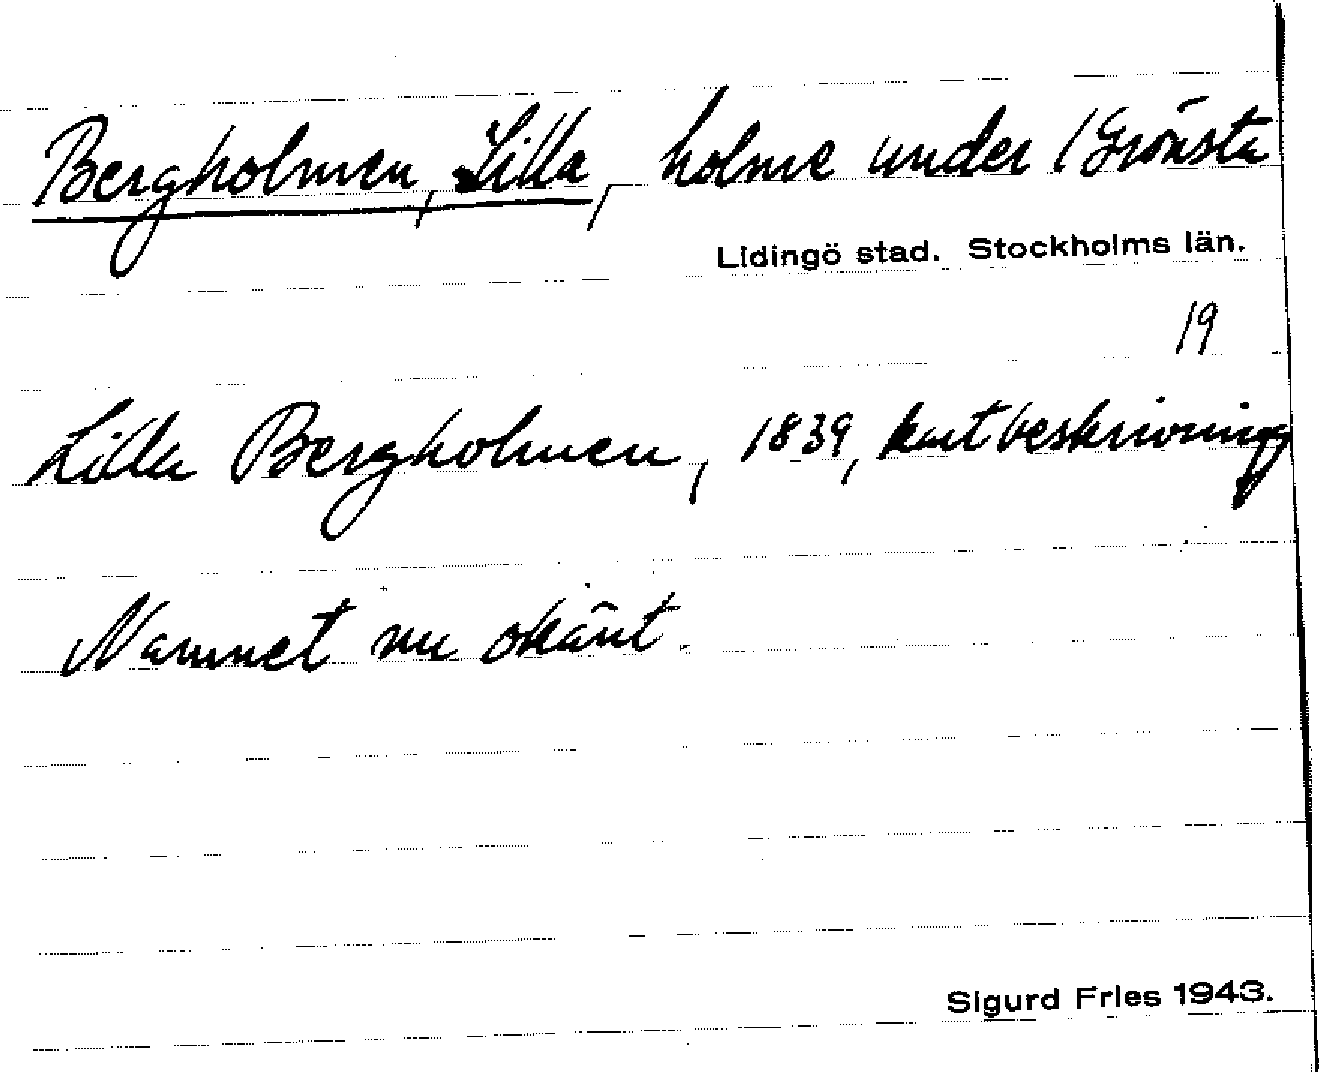 Bergholmen, Lilla, holme under 1 Grönsta
Lidingö stad. Stockholms län.
19
Lilla Bergholmen, 1839, kartbeskrivning
Namnet nu okänt.
Sigurd Fries 1943.